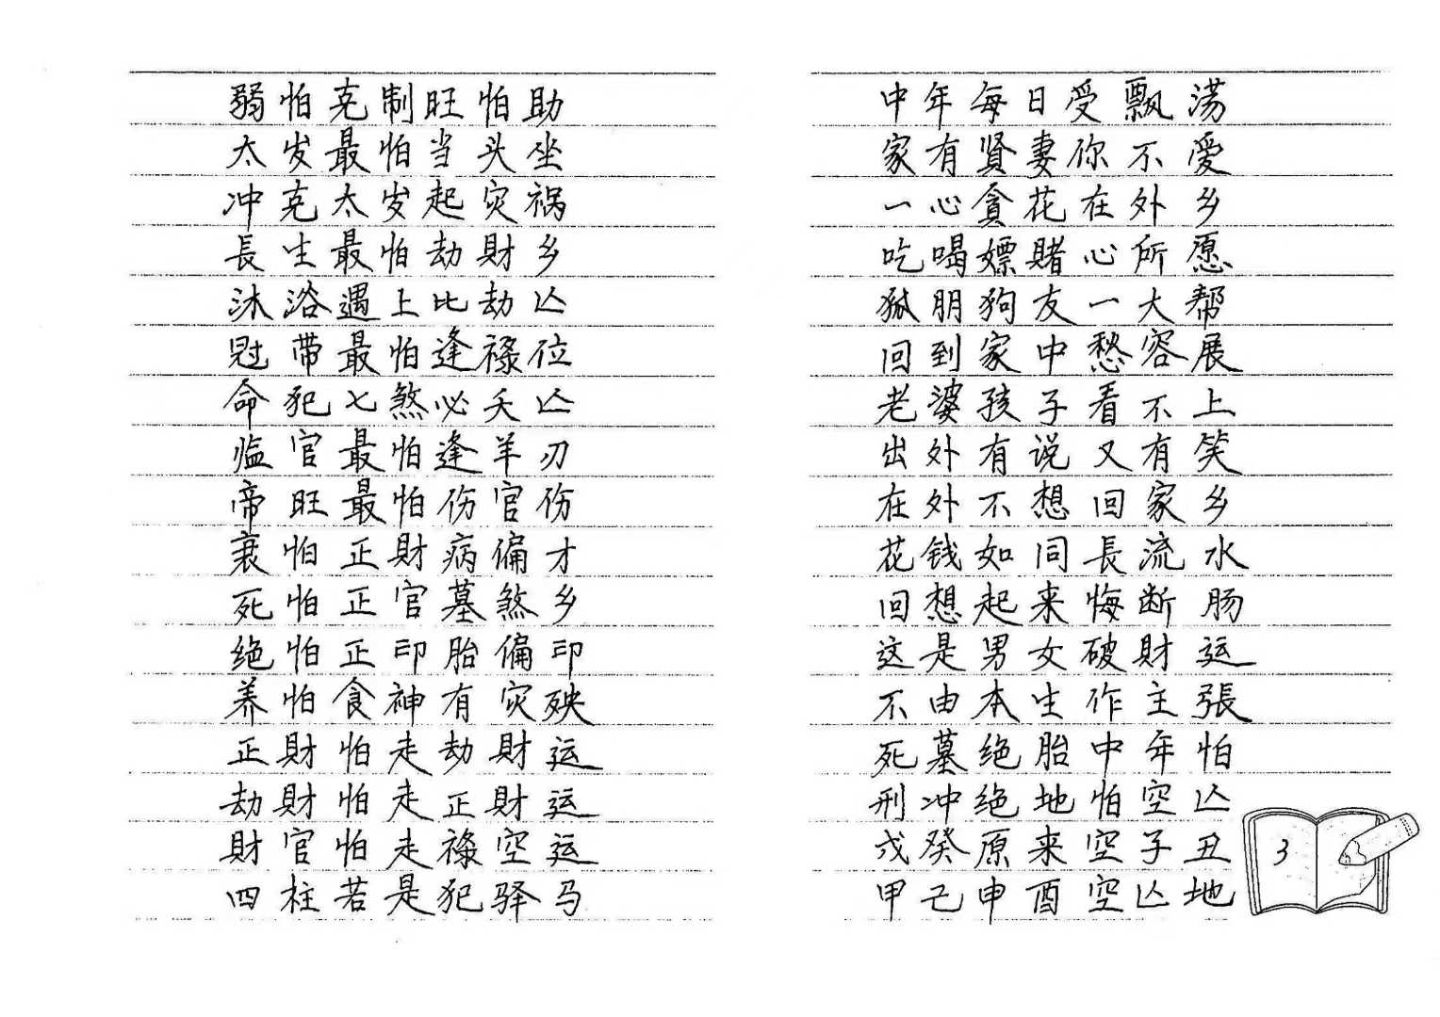 弱怕克制旺怕助
太岁最怕当头坐
冲克太岁起灾祸
長生最怕劫財乡
沐浴遇上比劫亾
冠带最怕逢禄位
命犯七煞必夭亾
临官最怕逢羊刃
帝旺最怕伤官伤
衰怕正財病偏才
死怕正官墓煞乡
绝怕正印胎偏印
养怕食神有灾殃
正財怕走劫財运
劫財怕走正財运
財官怕走禄空运
四柱若是犯驿马
中年每日受飘荡
家有贤妻你不愛
一心貪花在外乡
吃喝嫖賭心所愿
狐朋狗友一大帮
回到家中愁容展
老婆孩子看不上
出外有说又有笑
在外不想回家乡
花钱如同長流水
回想起来悔断肠
这是男女破財运
不由本生作主張
死墓绝胎中年怕
刑冲绝地怕空亾
戊癸原来空子丑
甲己申酉空亾地
3